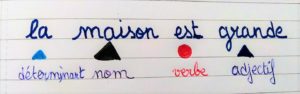 la maison est grande
déterminant nom verbe adjectif